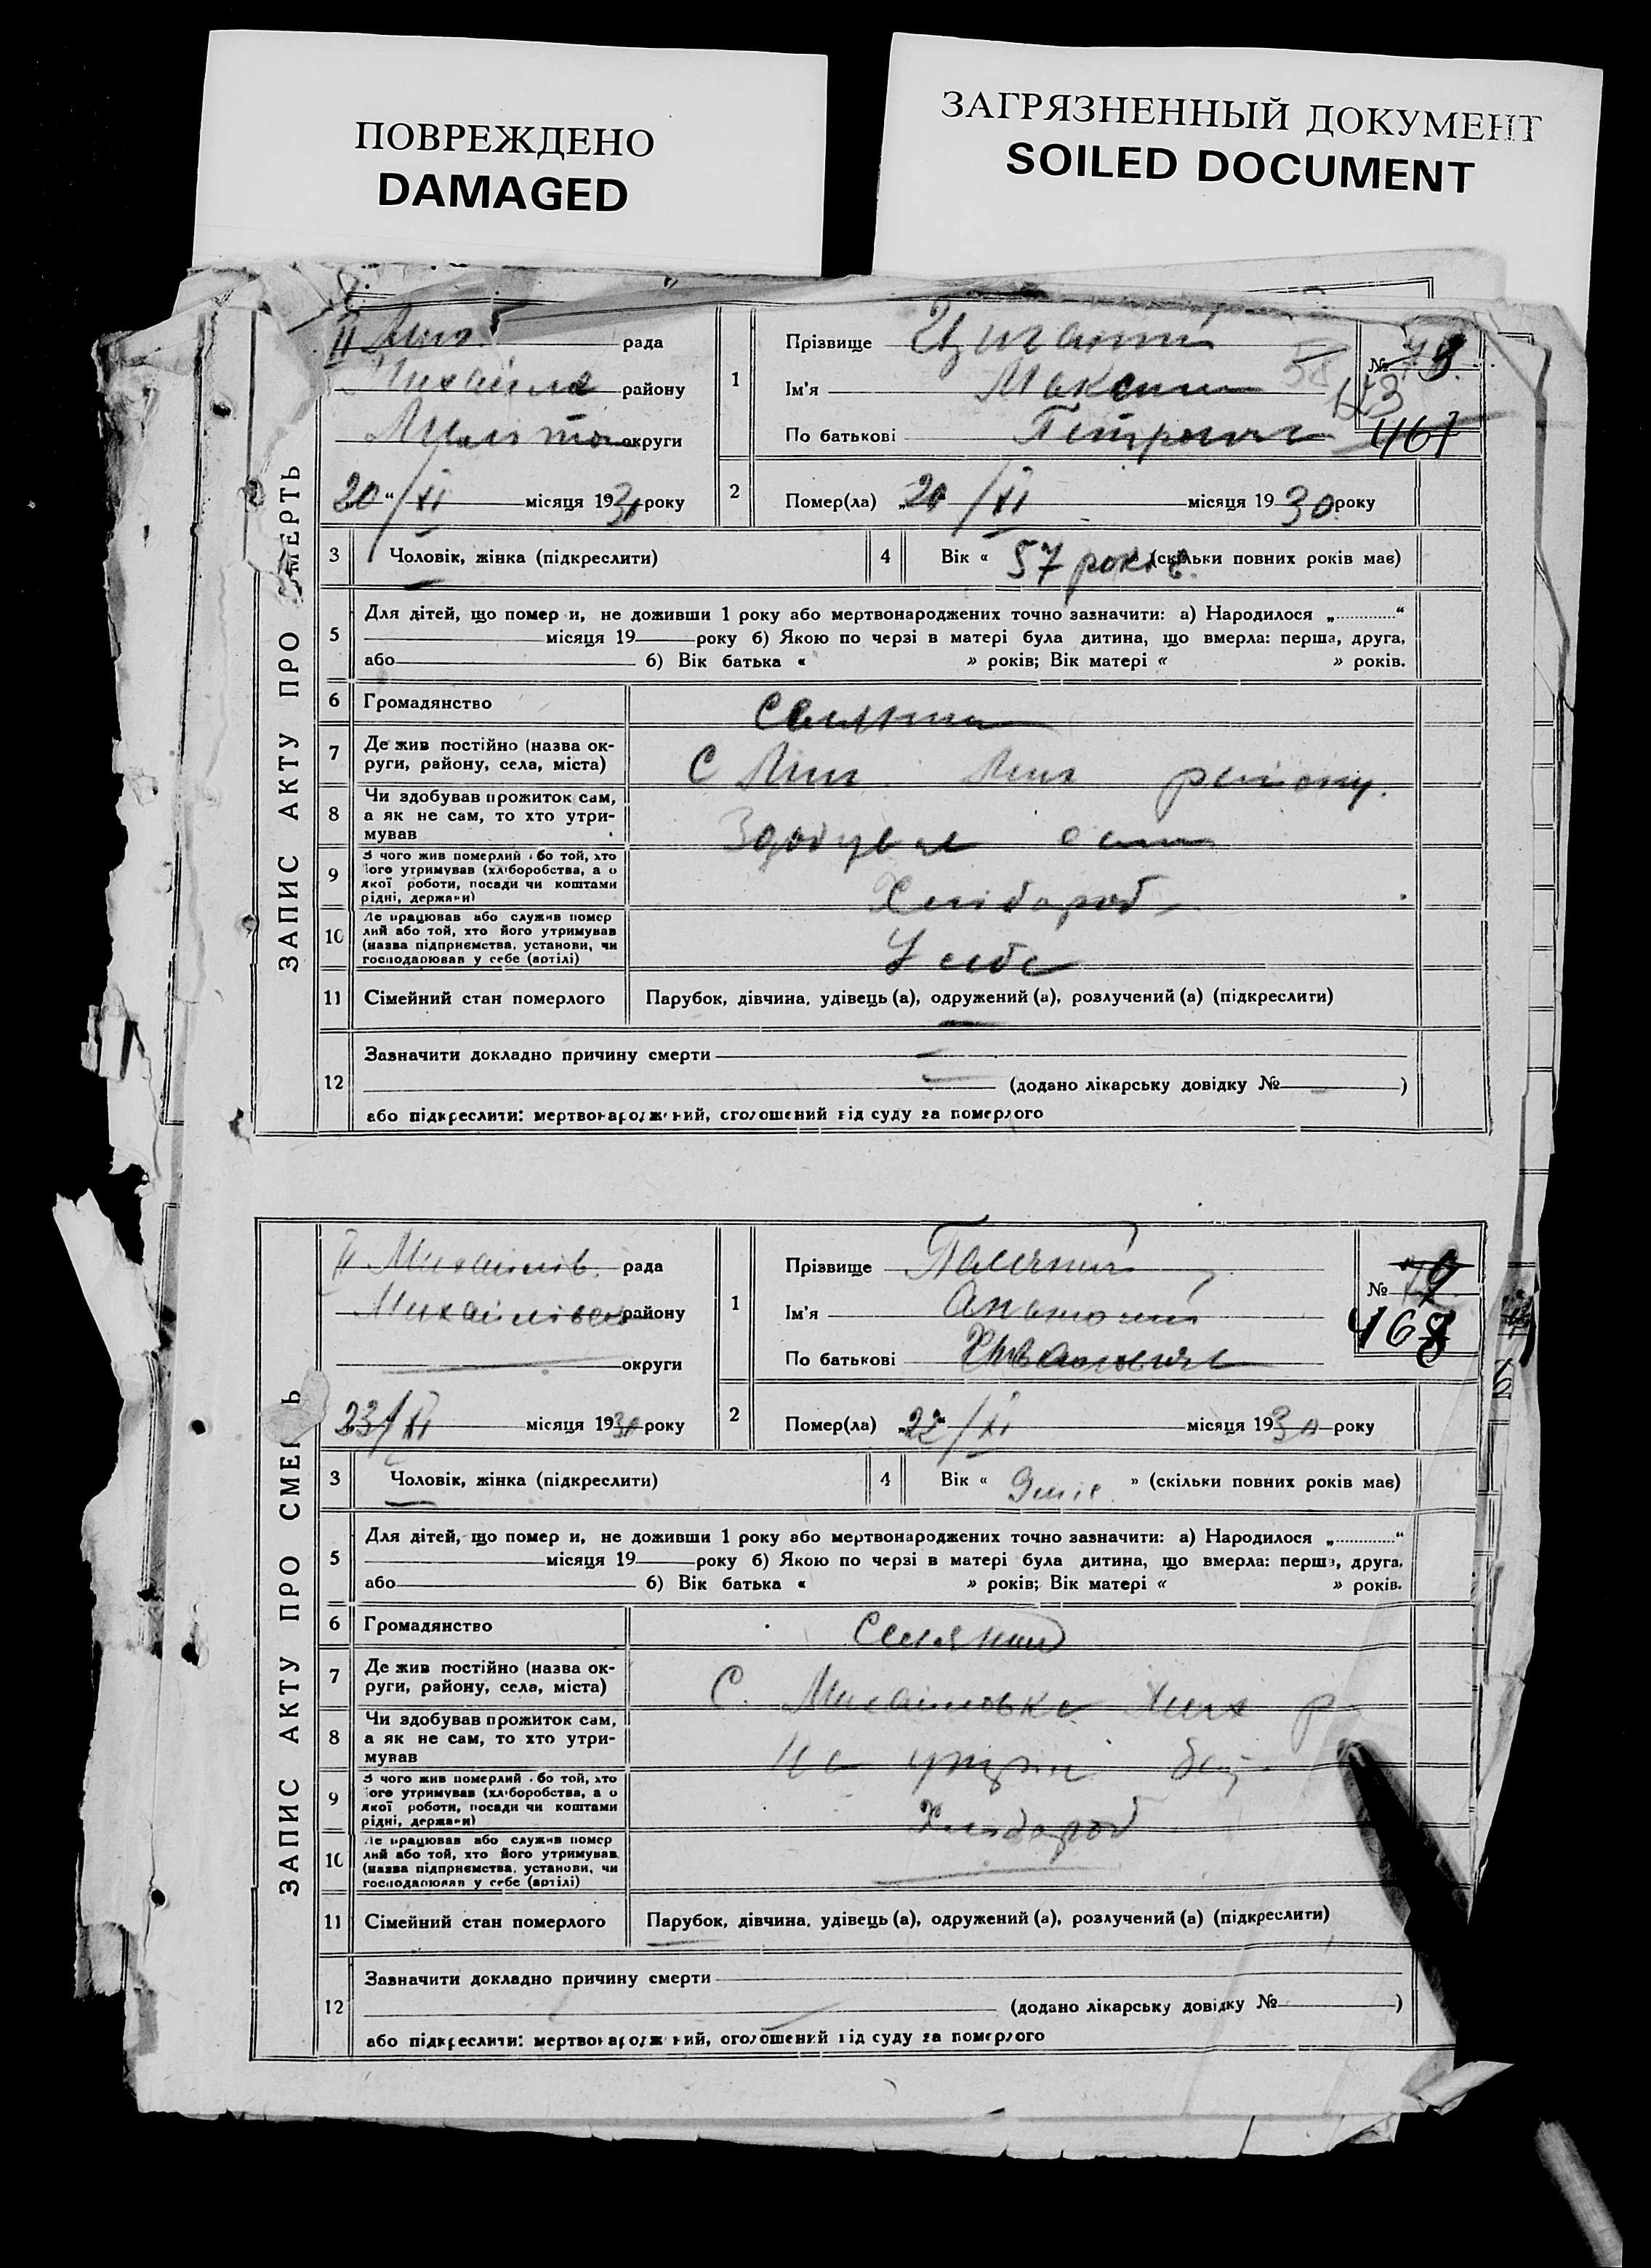 ПОВРЕЖДЕНО
DAMAGED
ЗАГРЯЗНЕННЫЙ ДОКУМЕНТ
SOILED DOCUMENT
ЗАПИС АКТУ ПРО СМЕРТЬ
II Мих. рада
района
округи
20 "/XI місяця 1930 року
1
Прізвище
Ім'я Максим
По батькові Петрович
№
467
2
Помер(ла) „20 /XI місяця 1930 року
3
Чоловік, жінка (підкреслити)
4
Вік « 57 років (скільки повних років має)
5
Для дітей, що помер и, не доживши 1 року або мертвонароджених точно зазначити: а) Народилося „..............“
місяця 19 року б) Якою по черзі в матері була дитина, що вмерла: перша, друга,
або б) Вік батька « » років; Вік матері « » років.
6
Громадянство
Селянин
7
Де жив постійно (назва ок-
руги, району, села, міста)
С Мих Мих району.
8
Чи здобував прожиток сам,
а як не сам, то хто утри-
мував
Здобував сам
9
З чого жив померлий або той, хто
його утримував (хліборобства, а о
якої роботи, посади чи коштами
рідні, держави)
Хлібороб
10
Де працював або служив помер
лий або той, хто його утримував
(назва підприємства, установи, чи
господарював у себе (артілі)
У себе
11
Сімейний стан померлого
Парубок, дівчина, удівець (а), одружений (а), розлучений (а) (підкреслити)
12
Зазначити докладно причину смерти
(додано лікарську довідку № )
або підкреслити: мертвонароджений, оголошений від суду за померлого
ЗАПИС АКТУ ПРО СМЕРЬ
II Михайлів. рада
Михайлівськ району
округи
23/XI місяця 1930 року
1
Прізвище
Ім'я Анатолий
По батькові Иванович
№
468
2
Помер(ла) „22 /XI місяця 1930 року
3
Чоловік, жінка (підкреслити)
4
Вік « » (скільки повних років має)
5
Для дітей, що помер и, не доживши 1 року або мертвонароджених точно зазначити: а) Народилося „..............“
місяця 19 року б) Якою по черзі в матері була дитина, що вмерла: перша, друга,
або б) Вік батька « » років; Вік матері « » років.
6
Громадянство
Селянин
7
Де жив постійно (назва ок-
руги, району, села, міста)
С. Михайловка Мих р
8
Чи здобував прожиток сам,
а як не сам, то хто утри-
мував
9
З чого жив померлий або той, хто
його утримував (хліборобства, а о
якої роботи, посади чи коштами
рідні, держави)
Хлібороб
10
Де працював або служив помер
лий або той, хто його утримував
(назва підприємства, установи, чи
господарював у себе (артілі)
11
Сімейний стан померлого
Парубок, дівчина, удівець (а), одружений (а), розлучений (а) (підкреслити)
12
Зазначити докладно причину смерти
(додано лікарську довідку № )
або підкреслити: мертвонароджений, оголошений від суду за померлого